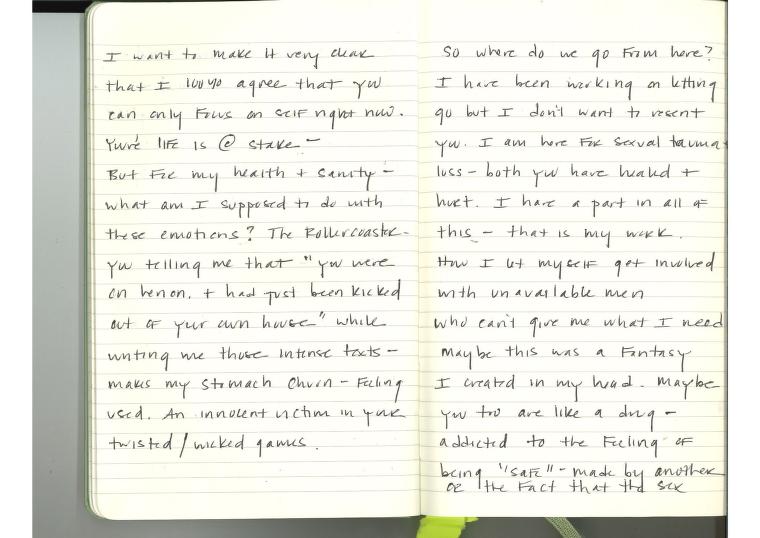 I want to make it very clear
that I 100% agree that you
can only focus on self right now.
Your'e life is @ stake -
But for my health + sanity -
what am I supposed to do with
these emotions? The Rollercoaster -
you telling me that "you were
on heroin. + had just been kicked
out of your own house" while
writing me those intense texts -
makes my stomach churn - Feeling
used. An innocent victim in your
twisted / wicked games.
So where do we go from here?
I have been working on letting
go but I don't want to resent
you. I am here for sexual trauma
loss - both you have healed +
hurt. I have a part in all of
this - that is my work.
How I let myself get involved
with unavailable men
who can't give me what I need
Maybe this was a Fantasy
I created in my head. Maybe
you too are like a drug -
addicted to the Feeling of
being "safe" - made by another
or the Fact that the sex